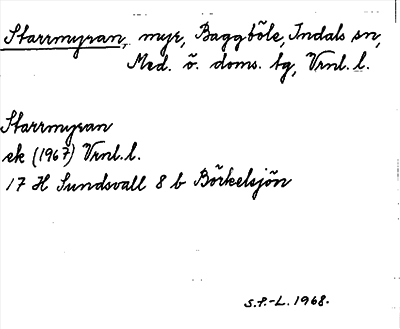 Starrmyran, myr, Baggböle, Indals sn,
Med. ö. doms. tg, Vrnl. l.
Starrmyran
ek (1967) Vrnl. l.
17 H Sundsvall 8 b Börkelsjön
S.F.-L. 1968.